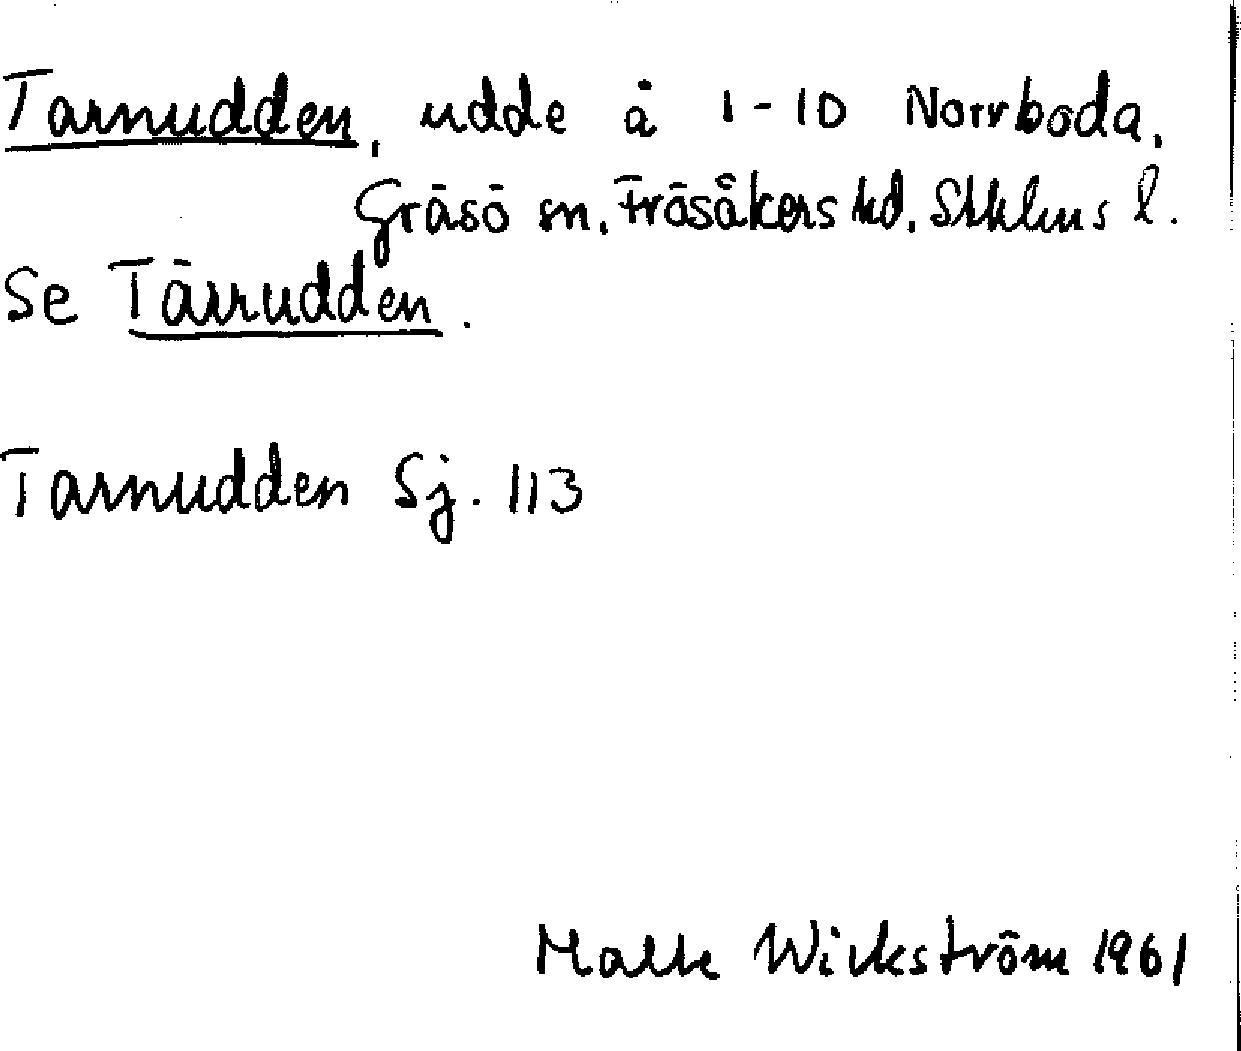 Tarnudden, udde å 1-10 Norrboda,
Gräsö sn. Frösåkers hd. Sthlms l.
Se Tärrudden.
Tarnudden Sj. 113
Malte Wickström 1961